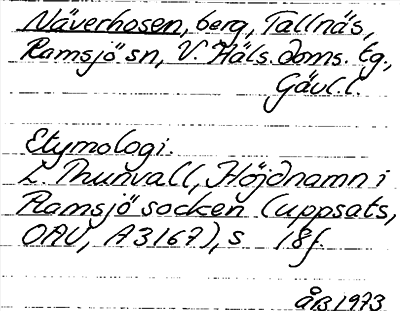 Näverhosen, berg, Tallnäs,
Ramsjö sn, V. Häls. doms. tg.,
Gävl. l.
Etymologi.
L. Thunvall, Höjdnamn i
Ramsjö socken (uppsats,
OAU, A3167), s 18f.
ÅB 1973